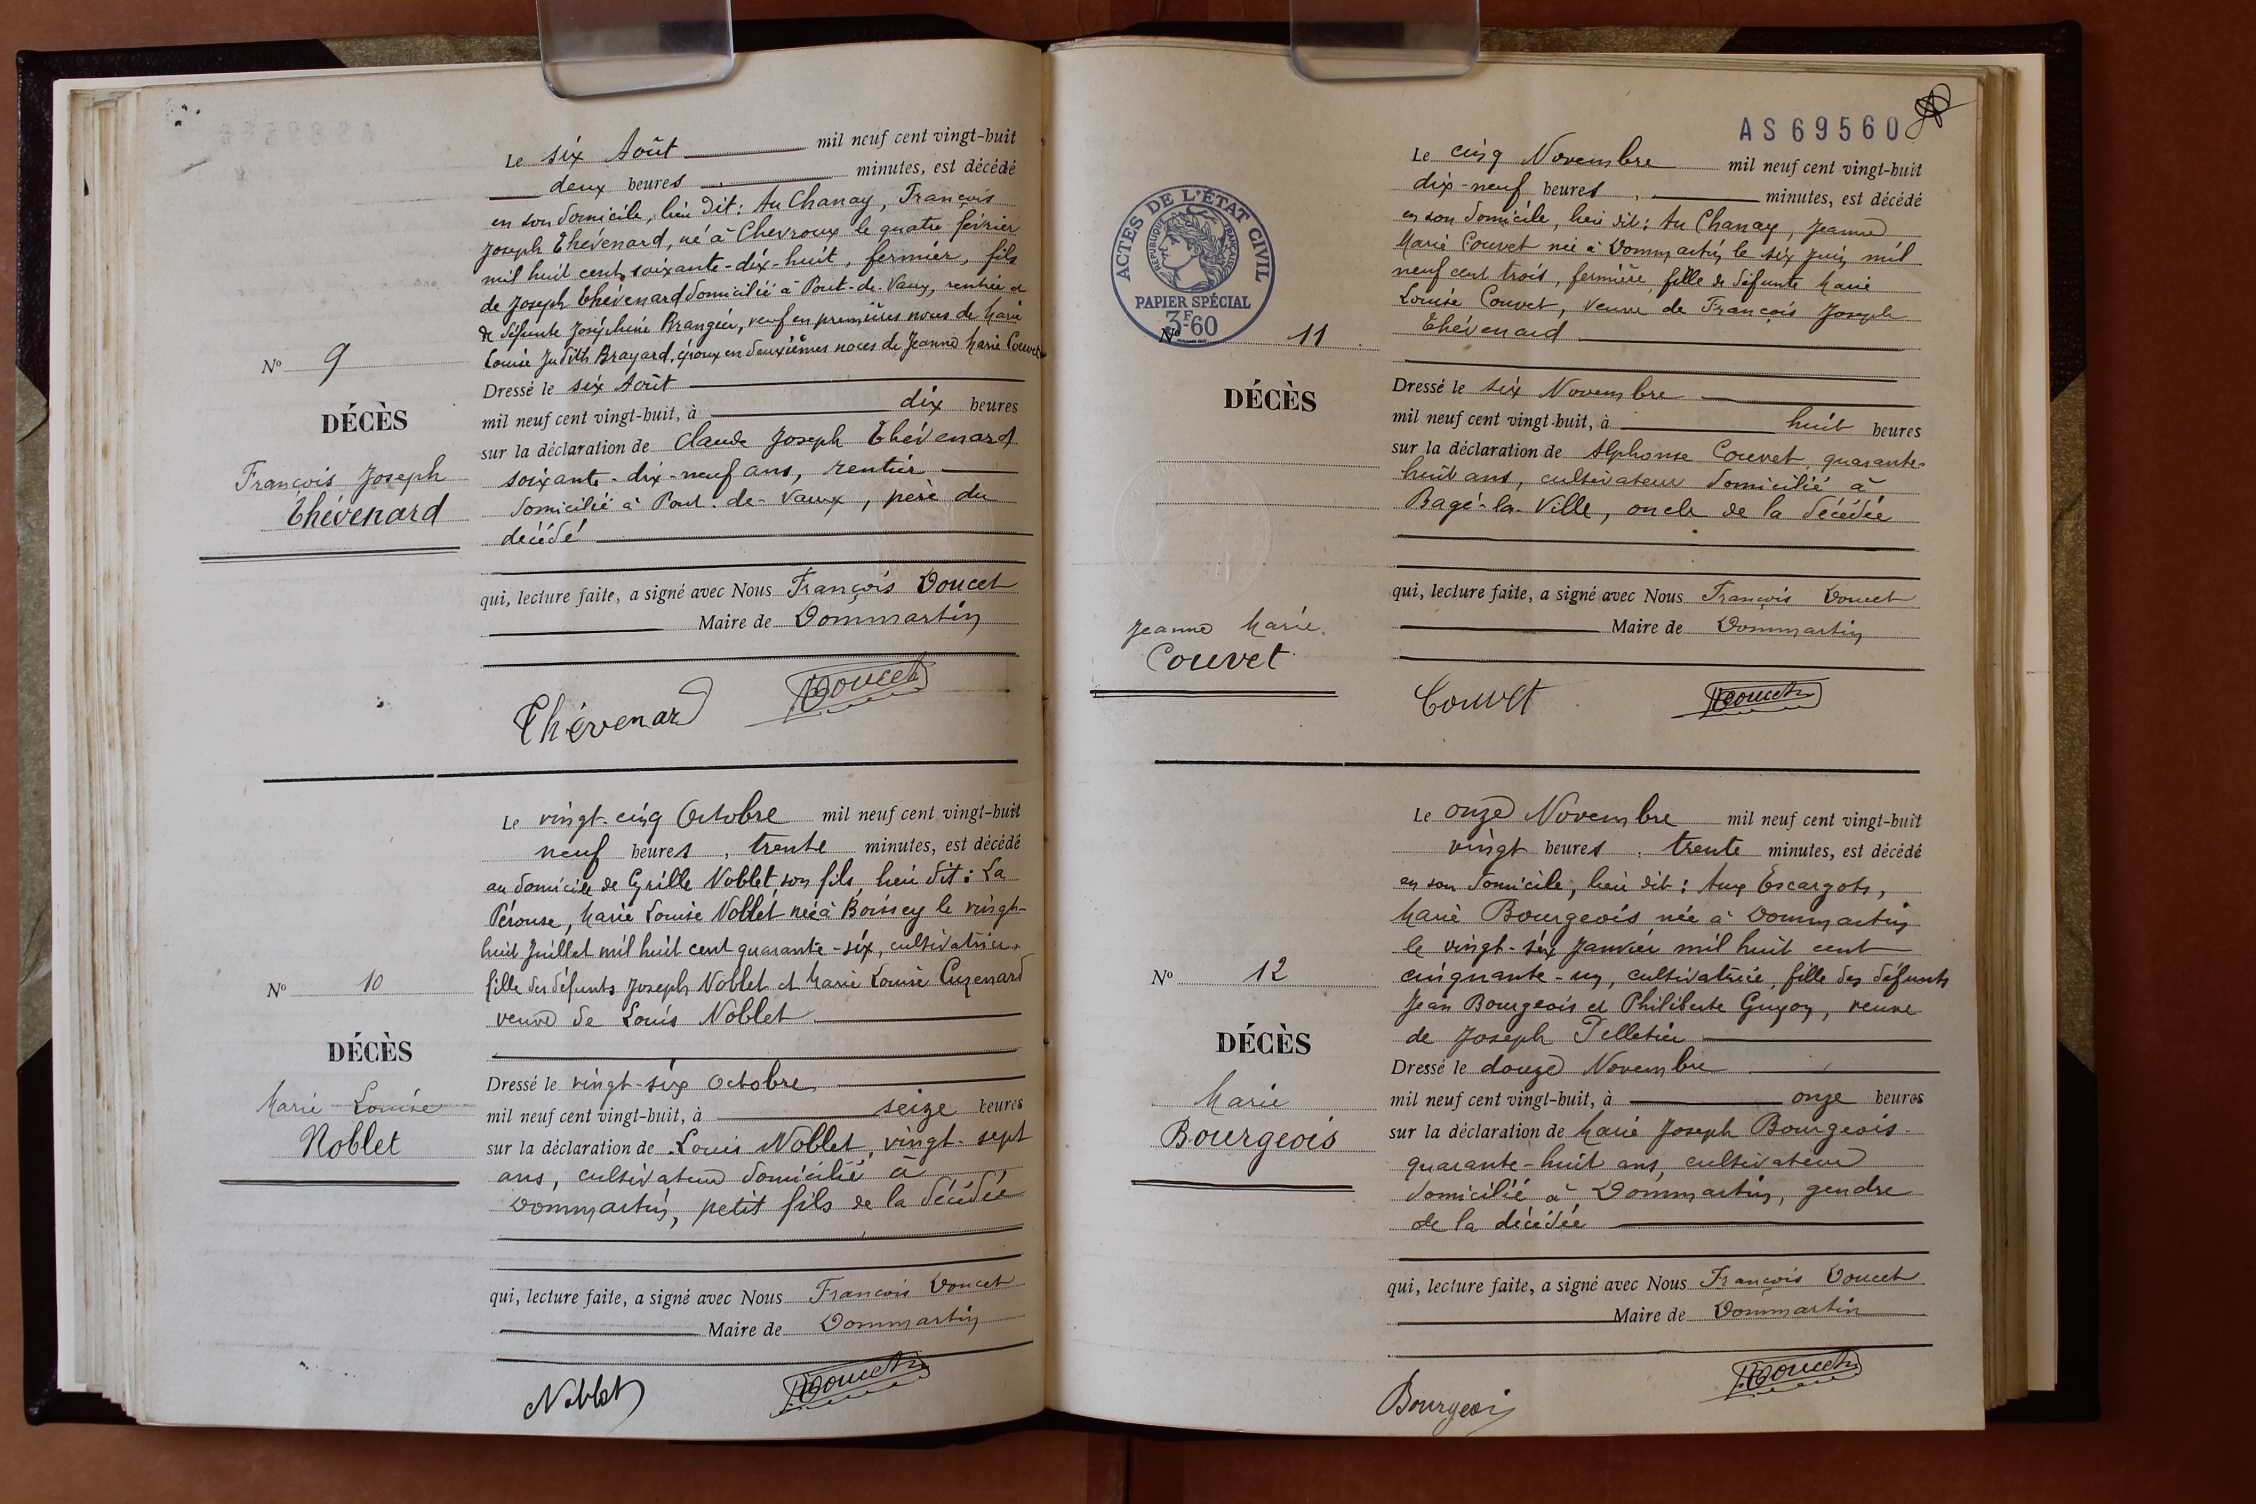 Le six Août mil neuf cent vingt-huit
deux heures, minutes, est décédé
en son domicile, lieu dit : Au Chanay, François
Joseph Thévenard, né à Chevroux le quatre février
mil huit cent soixante-dix-huit, fermier, fils
de Joseph Thévenard domicilié à Pont-de-Vaux, rentier et
de défunte Joséphine Brangier, veuf en premières noces de Marie
Louise Judith Brayard, époux en deuxièmes noces de Jeanne Marie Couvet
N° 9
DÉCÈS
François Joseph
Thévenard
Dressé le six Août
mil neuf cent vingt-huit, à dix heures
sur la déclaration de Claude Joseph Thévenard
soixante-dix-neuf ans, rentier
domicilié à Pont-de-Vaux, père du
décédé
qui, lecture faite, a signé avec Nous François Doucet
Maire de Dommartin
Thévenard
Doucet
Le vingt-cinq Octobre mil neuf cent vingt-huit
neuf heures, trente minutes, est décédé
au domicile de Cyrille Noblet, son fils, lieu dit : La
Pérouse, Marie Louise Noblet née à Boissey le vingt-
huit Juillet mil huit cent quarante-six, cultivatrice,
fille des défunts Joseph Noblet et Marie Louise Cuzenard
veuve de Louis Noblet
N° 10
DÉCÈS
Marie Louise
Noblet
Dressé le vingt-six Octobre
mil neuf cent vingt-huit, à seize heures
sur la déclaration de Louis Noblet, vingt-sept
ans, cultivateur domicilié à
Dommartin, petit fils de la décédée
qui, lecture faite, a signé avec Nous François Doucet
Maire de Dommartin
Noblet
F. Doucet
AS69560
ACTES DE L'ÉTAT CIVIL
RÉPUBLIQUE FRANÇAISE
PAPIER SPÉCIAL
3F60
Le cinq Novembre mil neuf cent vingt-huit
dix-neuf heures, minutes, est décédé
en son domicile, lieu dit : Au Chanay, Jeanne
Marie Couvet née à Dommartin le six juin mil
neuf cent trois, fermière, fille de défunte Marie
Louise Couvet, veuve de François Joseph
Thévenard
N° 11
DÉCÈS
Jeanne Marie
Couvet
Dressé le six Novembre
mil neuf cent vingt-huit, à huit heures
sur la déclaration de Alphonse Couvet, quarante-
huit ans, cultivateur domicilié à
Bagé-la-Ville, oncle de la décédée
qui, lecture faite, a signé avec Nous François Doucet
Maire de Dommartin
Couvet
F. Doucet
Le onze Novembre mil neuf cent vingt-huit
vingt heures, trente minutes, est décédé
en son domicile, lieu dit : Aux Escargots,
Marie Bourgeois née à Dommartin
le vingt-six Janvier mil huit cent
cinquante-un, cultivatrice, fille des défunts
Jean Bourgeois et Philiberte Guyon, veuve
de Joseph Pelletier
N° 12
DÉCÈS
Marie
Bourgeois
Dressé le douze Novembre
mil neuf cent vingt-huit, à onze heures
sur la déclaration de Marie Joseph Bourgeois
quarante-huit ans, cultivateur
domicilié à Dommartin, gendre
de la décédée
qui, lecture faite, a signé avec Nous François Doucet
Maire de Dommartin
Bourgeois
F. Doucet